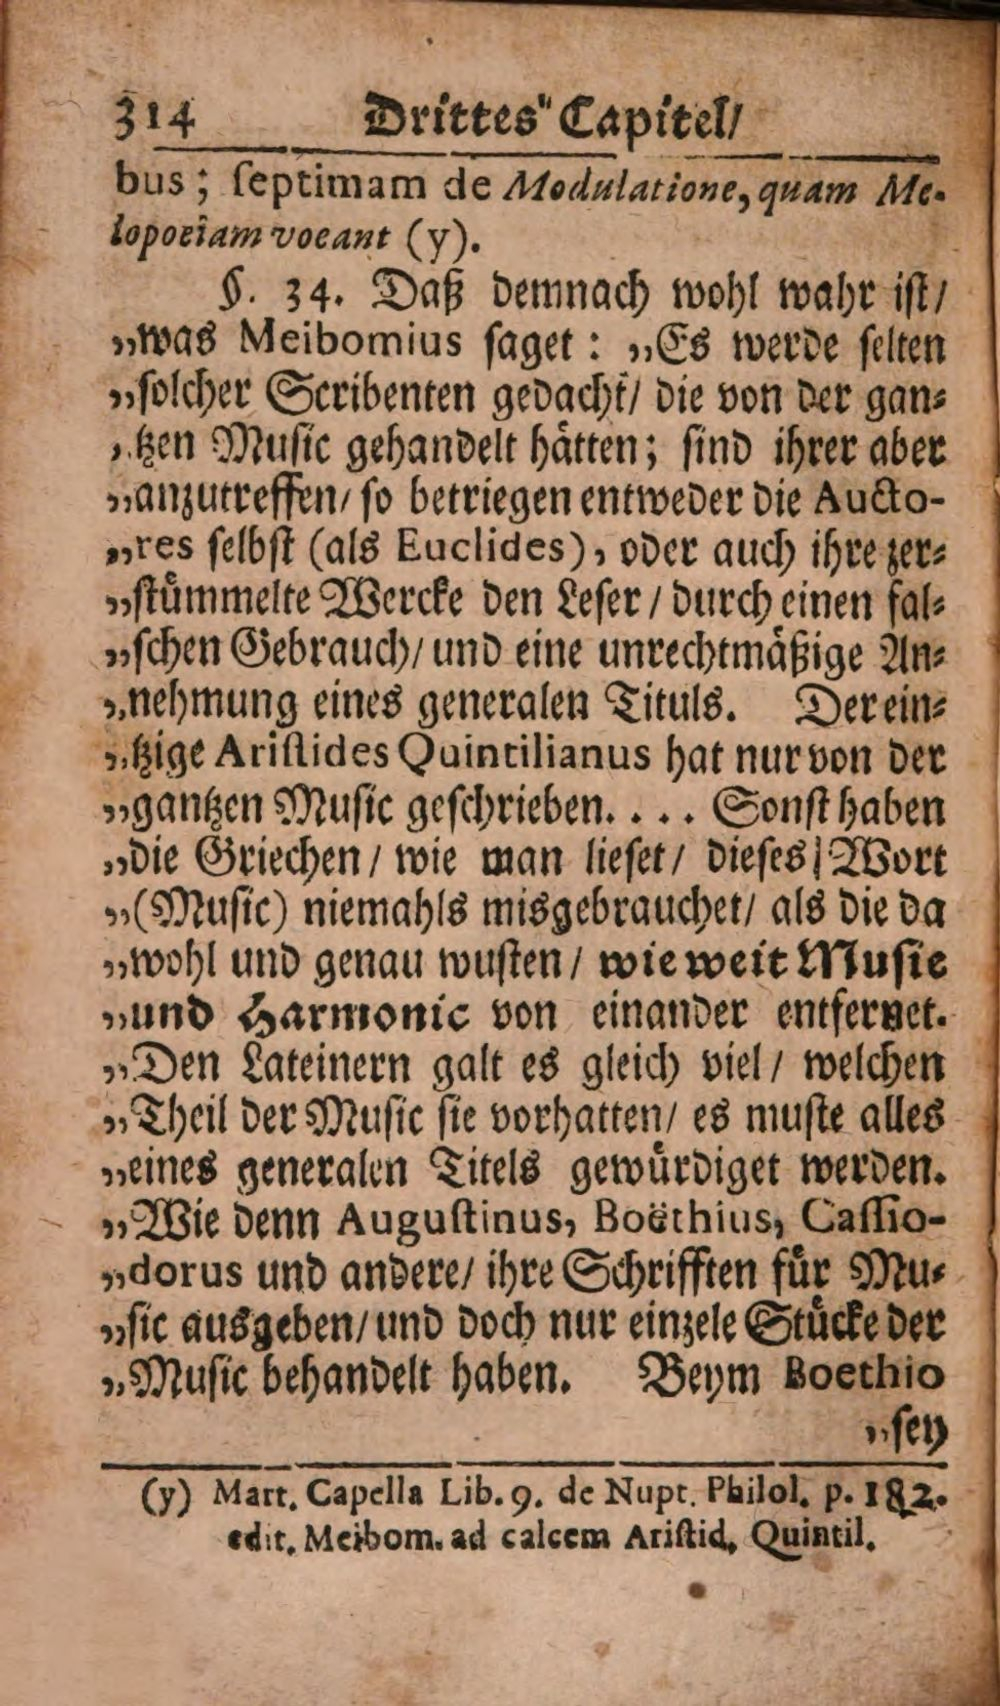 314 Drittes Capitel/
bus; ſeptimam de Modulatione, quam Me-
lopoeiam vocant (y).
§. 34. Daß demnach wohl wahr iſt/
„was Meibomius ſaget: „Es werde ſelten
„ſolcher Scribenten gedacht/ die von der gan⸗
„tzen Muſic gehandelt haͤtten; ſind ihrer aber
„anzutreffen/ ſo betriegen entweder die Aucto-
„res ſelbſt (als Euclides), oder auch ihre zer⸗
„ſtuͤmmelte Wercke den Leſer / durch einen fal⸗
„ſchen Gebrauch/ und eine unrechtmaͤßige An⸗
„nehmung eines generalen Tituls. Der ein⸗
„tzige Ariſtides Quintilianus hat nur von der
„gantzen Muſic geſchrieben. . . . Sonſt haben
„die Griechen / wie man lieſet / dieſes Wort
„(Muſic) niemahls misgebrauchet/ als die da
„wohl und genau wuſten / wie weit Muſic
„und Harmonic von einander entfernet.
„Den Lateinern galt es gleich viel / welchen
„Theil der Muſic ſie vorhatten/ es muſte alles
„eines generalen Titels gewuͤrdiget werden.
„Wie denn Auguſtinus, Boëthius, Caſſio-
„dorus und andere/ ihre Schrifften fuͤr Mu⸗
„ſic ausgeben/ und doch nur einzele Stuͤcke der
„Muſic behandelt haben. Beym Boethio
„ſey
(y) Mart. Capella Lib. 9. de Nupt. Philol. p. 182.
edit. Meibom. ad calcem Ariſtid. Quintil.